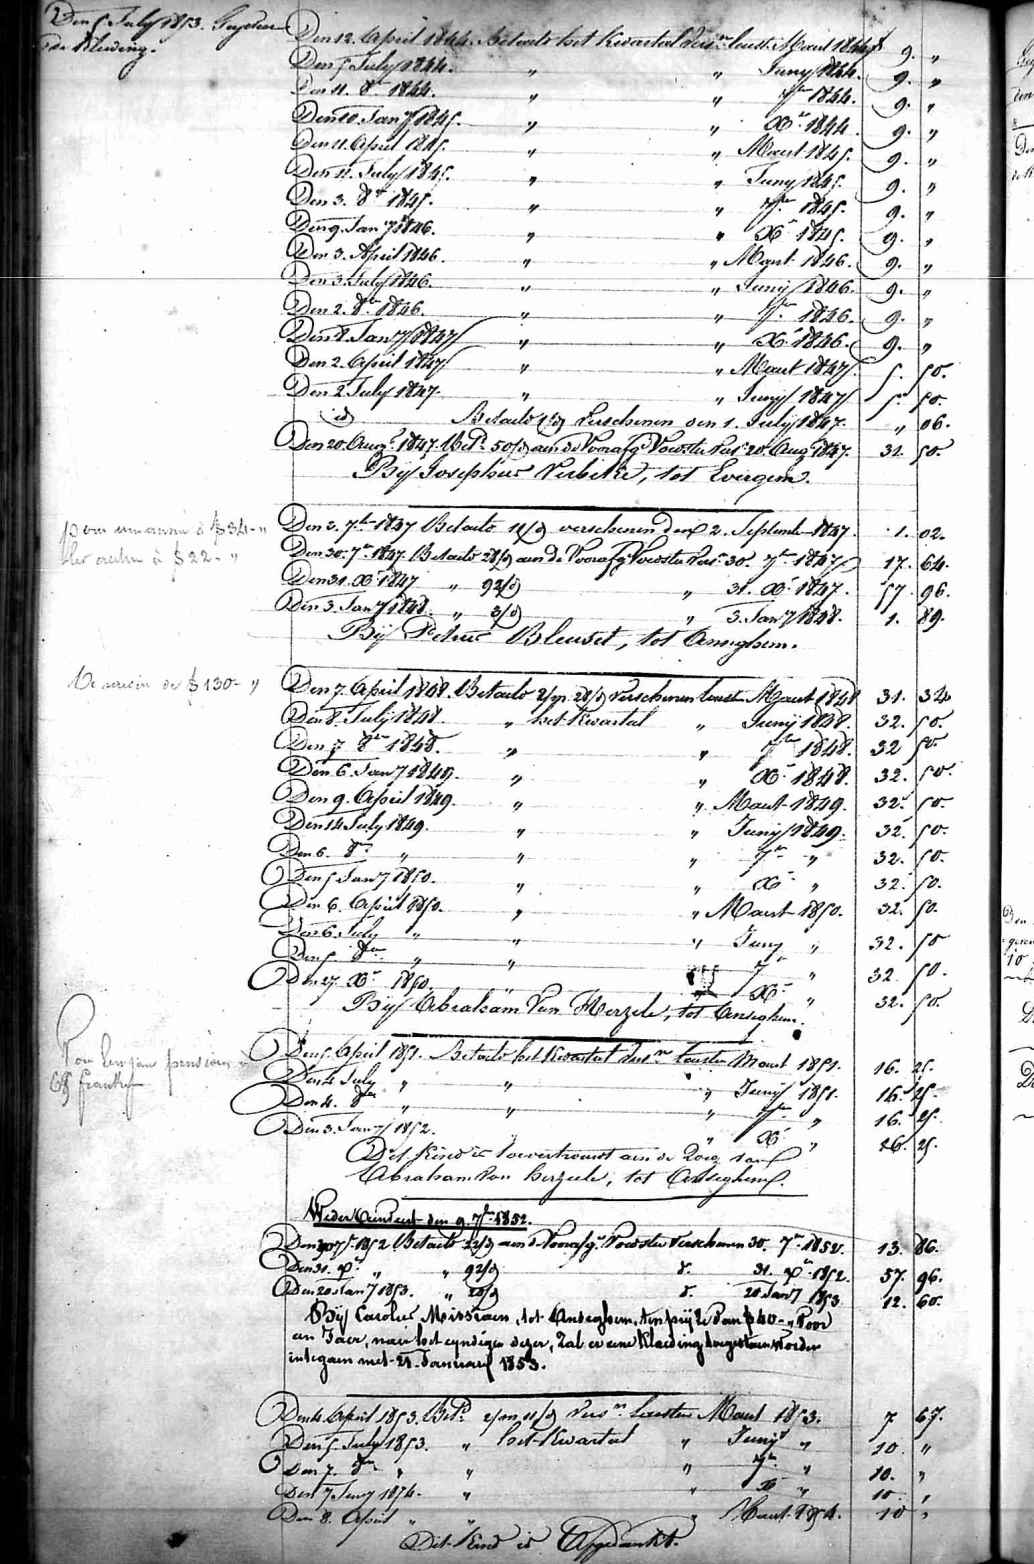 Den 5 July 1853.
de kleding.
Den 12. April 1844. Betaelt het Kwartael vers.en laest. Maart 1844 9. "
Den 5 July 1844. " " Juny 1844. 9. "
Den 11. 8.er 1844. " " 7.er 1844. 9. "
Den 10. Jan.y 1845. " " X.er 1844. 9. "
Den 11. April 1845. " " Maart 1845. 9. "
Den 11. July 1845. " " Juny 1845. 9. "
Den 3. 8.er 1845. " " 7.er 1845. 9. "
Den 9. Jan.y 1846. " " X.er 1845. 9. "
Den 3. April 1846. " " Maart 1846. 9. "
Den 3. July 1846. " " Juny 1846. 9. "
Den 2. 8.er 1846. " " 7.er 1846. 9. "
Den 8. Jan.y 1847 " " X.er 1846. 9. "
Den 2. April 1847 " " Maart 1847. 5. 50.
Den 2 July 1847. " " Juny 1847 5. 50.
id Betaelt 1/d verschenen den 1. July 1847. " 06.
Den 20. Aug. 1847. Bet. 50/d aen de Voorafg. Voedster vers. 20. Aug. 1847. 31. 50
Bij Josephus Verbeke, tot Evergem.
Den 3. 7.er 1847 Betaelt 11/d verschenen den 2. September 1847. 1. 02.
à 34- "
à 22- "
Den 30. 7.er 1847. Betaelt 28/d aen de Voorafg. Voedster vers. 30. 7.er 1847 17. 64.
Den 31. X.er 1847 " 92/d " 31. X.er 1847. 57. 96.
Den 3. Jan.y 1848. " 3/d " 3. Jan.y 1848. 1. 89.
Bij Petrus Bleuset, tot Anseghem.
de 130- "
Den 7. April 1848. Betaelt 2/m. 28/d verschenen laest. Maart 1848 31. 34
Den 8. July 1848. " het Kwartael " Juny 1848. 32. 50.
Den 7 8.er 1848. " " 7.er 1848. 32 50.
Den 6. Jan.y 1849. " " X.er 1848. 32. 50.
Den 9. April 1849. " " Maart 1849. 32. 50.
Den 14 July 1849. " " Juny 1849. 32. 50.
Den 6. 8.er " " " 7.er " 32. 50.
Den 5 Jan.y 1850. " " X.er " 32. 50.
Den 6. April 1850. " " Maart 1850. 32. 50.
Den 6. July " " " Juny " 32. 50
Den 5. 8.er " " 7.er " 32. 50.
Den 27. X.er 1850. X.er " 32. 50.
Bij Abraham Van Herzele, tot Anseghem.
Den 5. April 1851. Betaelt het Kwartael vers.en laesten Maart 1851. 16. 25.
Den 4 July " " " Juny 1851. 16. 25.
Den 4. 8.er " " " 7.er " 16. 25.
Den 3. Jan.y 1852. " X.er " 16. 25.
Dit Kind is toevertrouwt aen de Zorg van
Abraham Van Herzele, tot Anseghem.
Weder den 9. 7.er 1852.
Den 30 7.er 1852 Betaelt 22/d aen de Voorafg. Voedster verschenen 30. 7.er 1852. 13. 86.
Den 31. X.er " " 92/d 31. X.er 1852. 57. 96.
Den 20 Jan.y 1853. " 20/d 20 Jan.y 1853 12. 60.
Bij Carolus tot Anseghem, ten prijze van 40- " Voor
een Jaer, naer het eyndigen dezer, Zal er eene Kleeding toegestaen worden
integaen met 21. Januarij 1853.
Den 4. April 1853. Bet. 2/m 11/d vers.en laesten Maart 1853. 7 67.
Den 5 July 1853. " het Kwartael " Juny " 10 "
Den 7. 8.er " " " 7.er " 10. "
Den 7 Jan.y 1854. " " X.er " 10 "
Den 8. April " " " Maart 1854. 10 "
Dit Kind is Afgedankt.